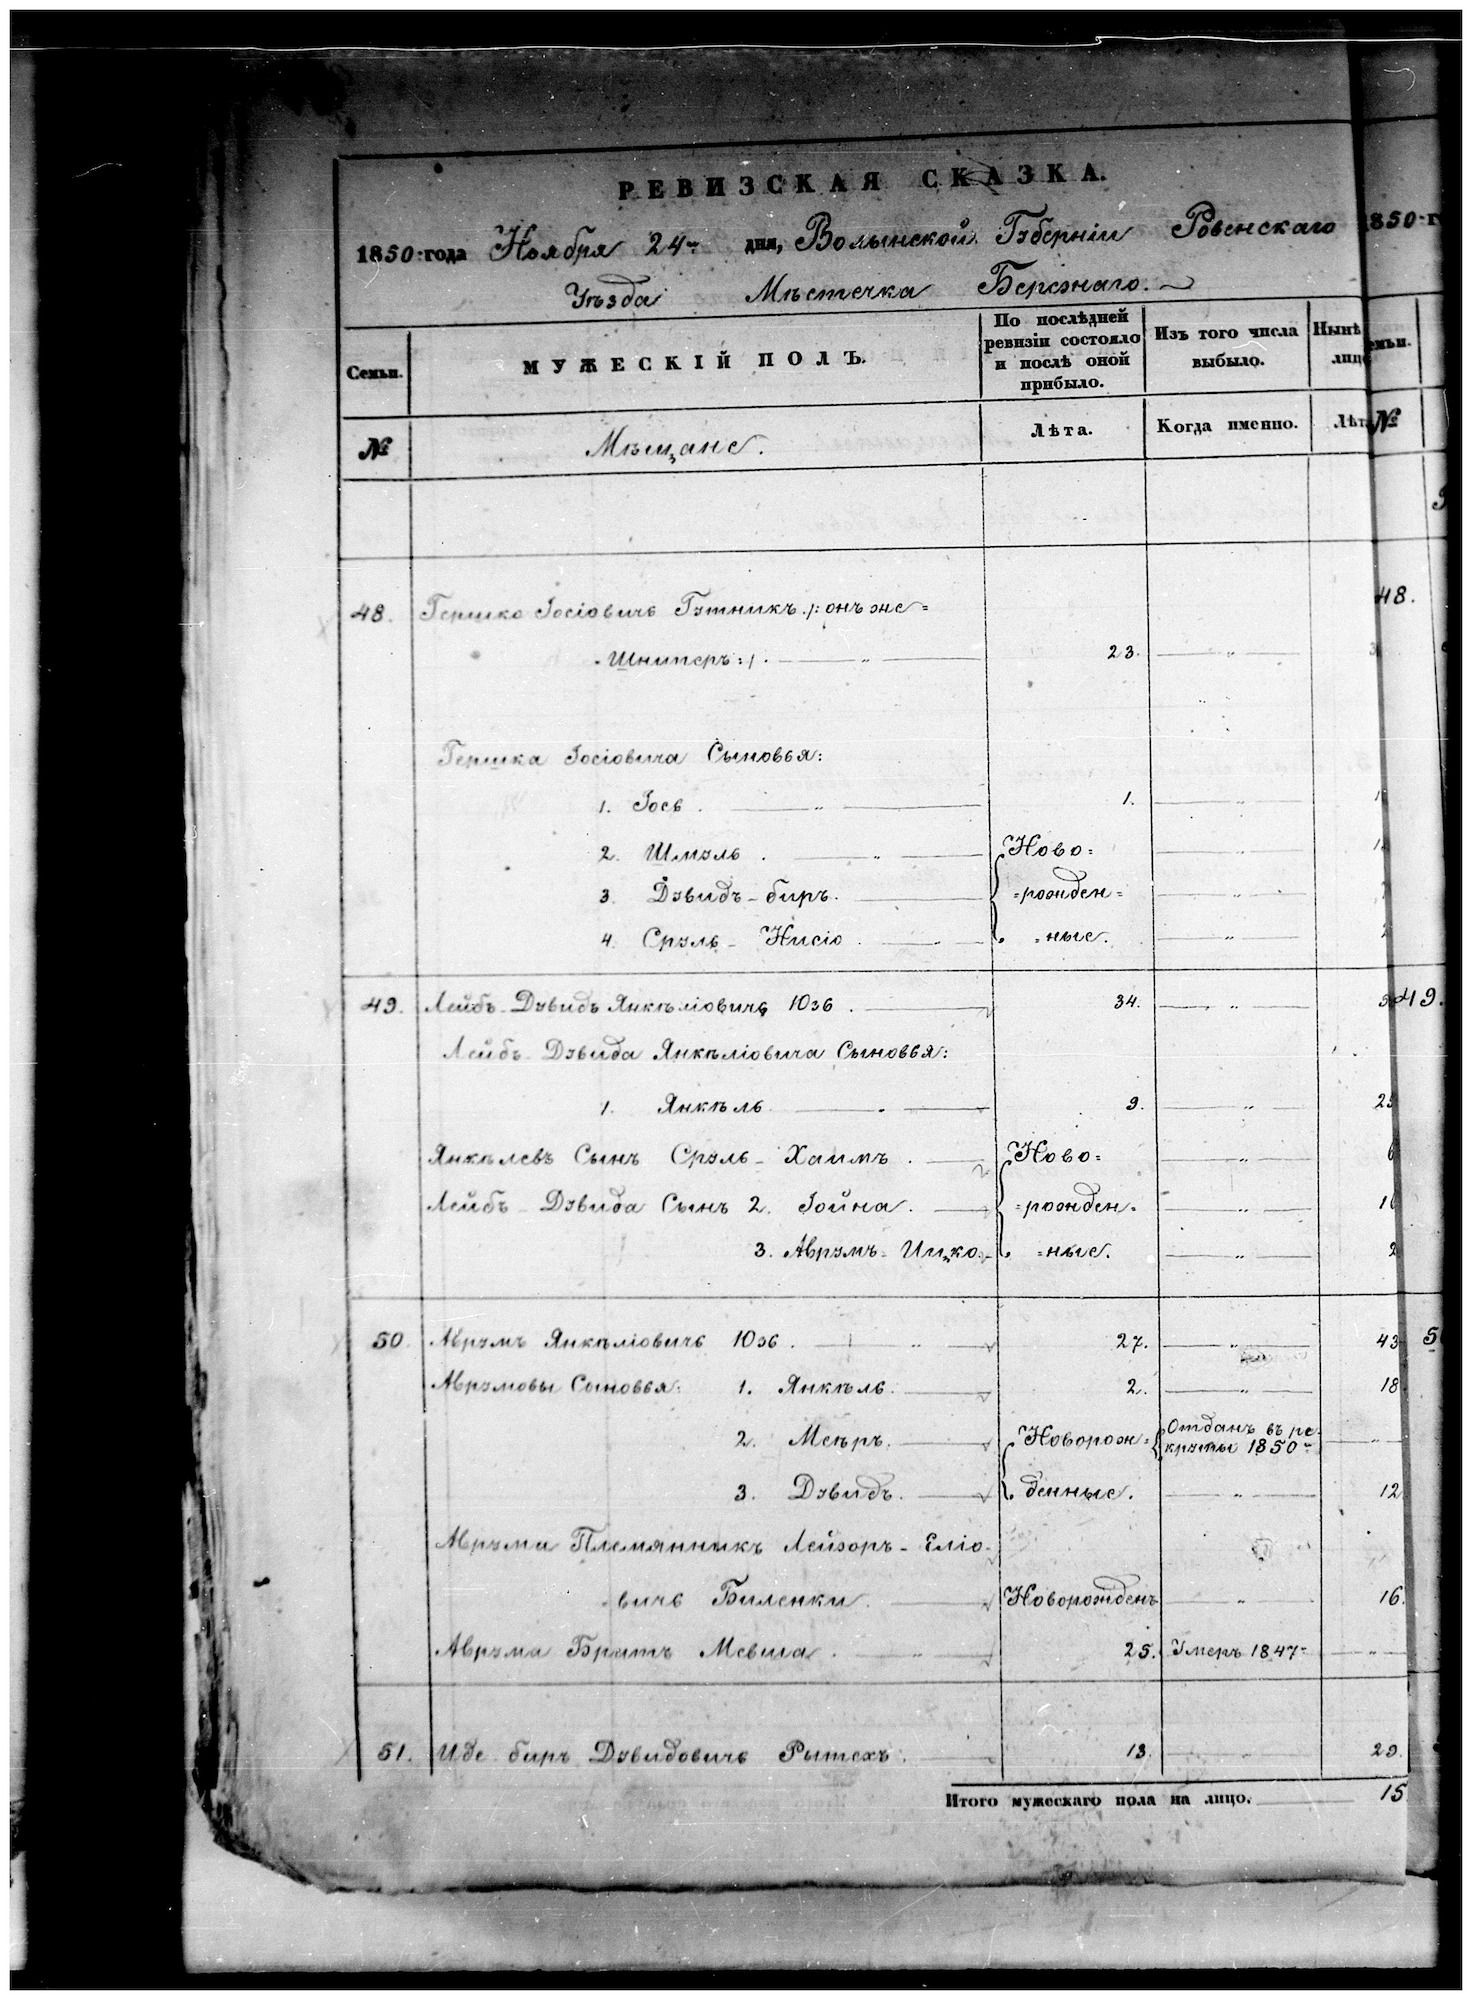 РЕВИЗСКАЯ СКАЗКА.
1850:года Ноября 24 дня, Волынской Губерніи Ровенскаго
Уѣзда Мѣстечка Березнаго.
1850
Семьи.
МУЖЕСКІЙ ПОЛЪ.
По послѣдней ревизіи состояло и послѣ оной прибыло.
Изъ того числа выбыло.
Нынѣ
№
Мѣщане.
Лѣта.
Когда именно.
№
48. Гершко Іосіовичь Гутникъ /: онъ же=
Шниперъ :/. 23.
48.
Гершка Іосіовича Сыновья:
1. Іось. 1.
2. Шмуль. Ново=
3. Дувидъ-биръ. =рожден=
4. Сруль-Нисіо. =ные.
49. Лейбъ-Дувидъ Янкѣліовичь Юзь. 34.
49.
Лейбъ-Дувида Янкѣліовича Сыновья:
1. Янкѣль 9.
Янкѣлевъ Сынъ Сруль-Хаимъ. Ново=
Лейбъ-Дувида Сынъ 2. Іойна. =рожден=
3. Аврумъ-Ицко. =ные. 2
50. Аврумъ Янкѣліовичь Юзь. 27. 43
Аврумовы Сыновья: 1. Янкѣль. 2. 18
2. Меѣръ. Новорож= Отданъ въ ре-
круты 1850
3. Дувидъ. денные. 12
Аврума Племянникъ Лейзоръ-Еліо-
вичь Биленки. Новорожденъ 16.
Аврума Братъ Мевша. 25. Умеръ 1847
51. Иде-биръ Дувидовичь Рытехъ. 13. 29.
Итого мужескаго пола на лицо. 15